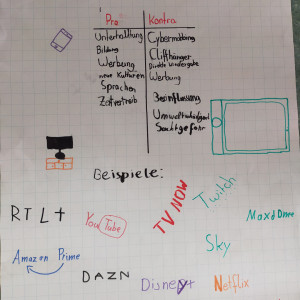 Pro Kontra
Unterhaltung Cybermobbing
Bildung Cliffhänger
Werbung Direkte Wiedergabe
neue Kulturen Werbung
Sprachen Beeinflussung
Zeitvertreib
Suchtgefahr
Beispiele:
RTL+ YouTube TV NOW Twitch
Maxdome
Sky
Amazon Prime
DAZN Disney+ Netflix